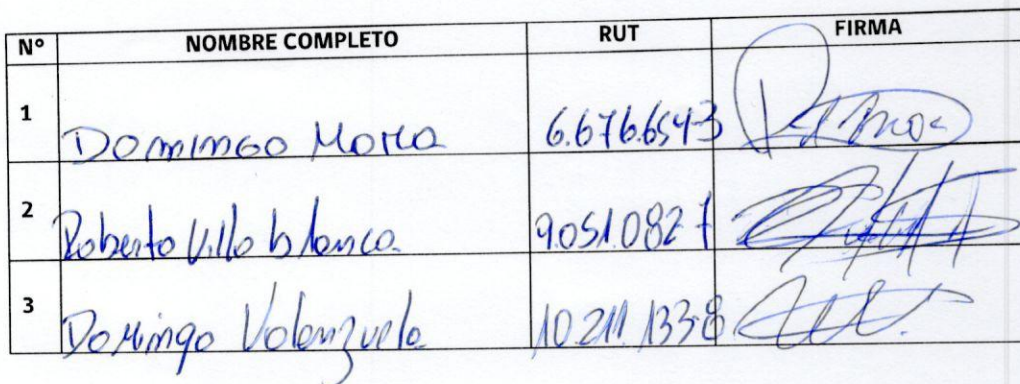 Nº NOMBRE COMPLETO RUT FIRMA
1 Domingo Mora 6.676.654-3
2 Roberto Villablanca 9.051.082-7
3 Domingo Valenzuela 10.211.133-8